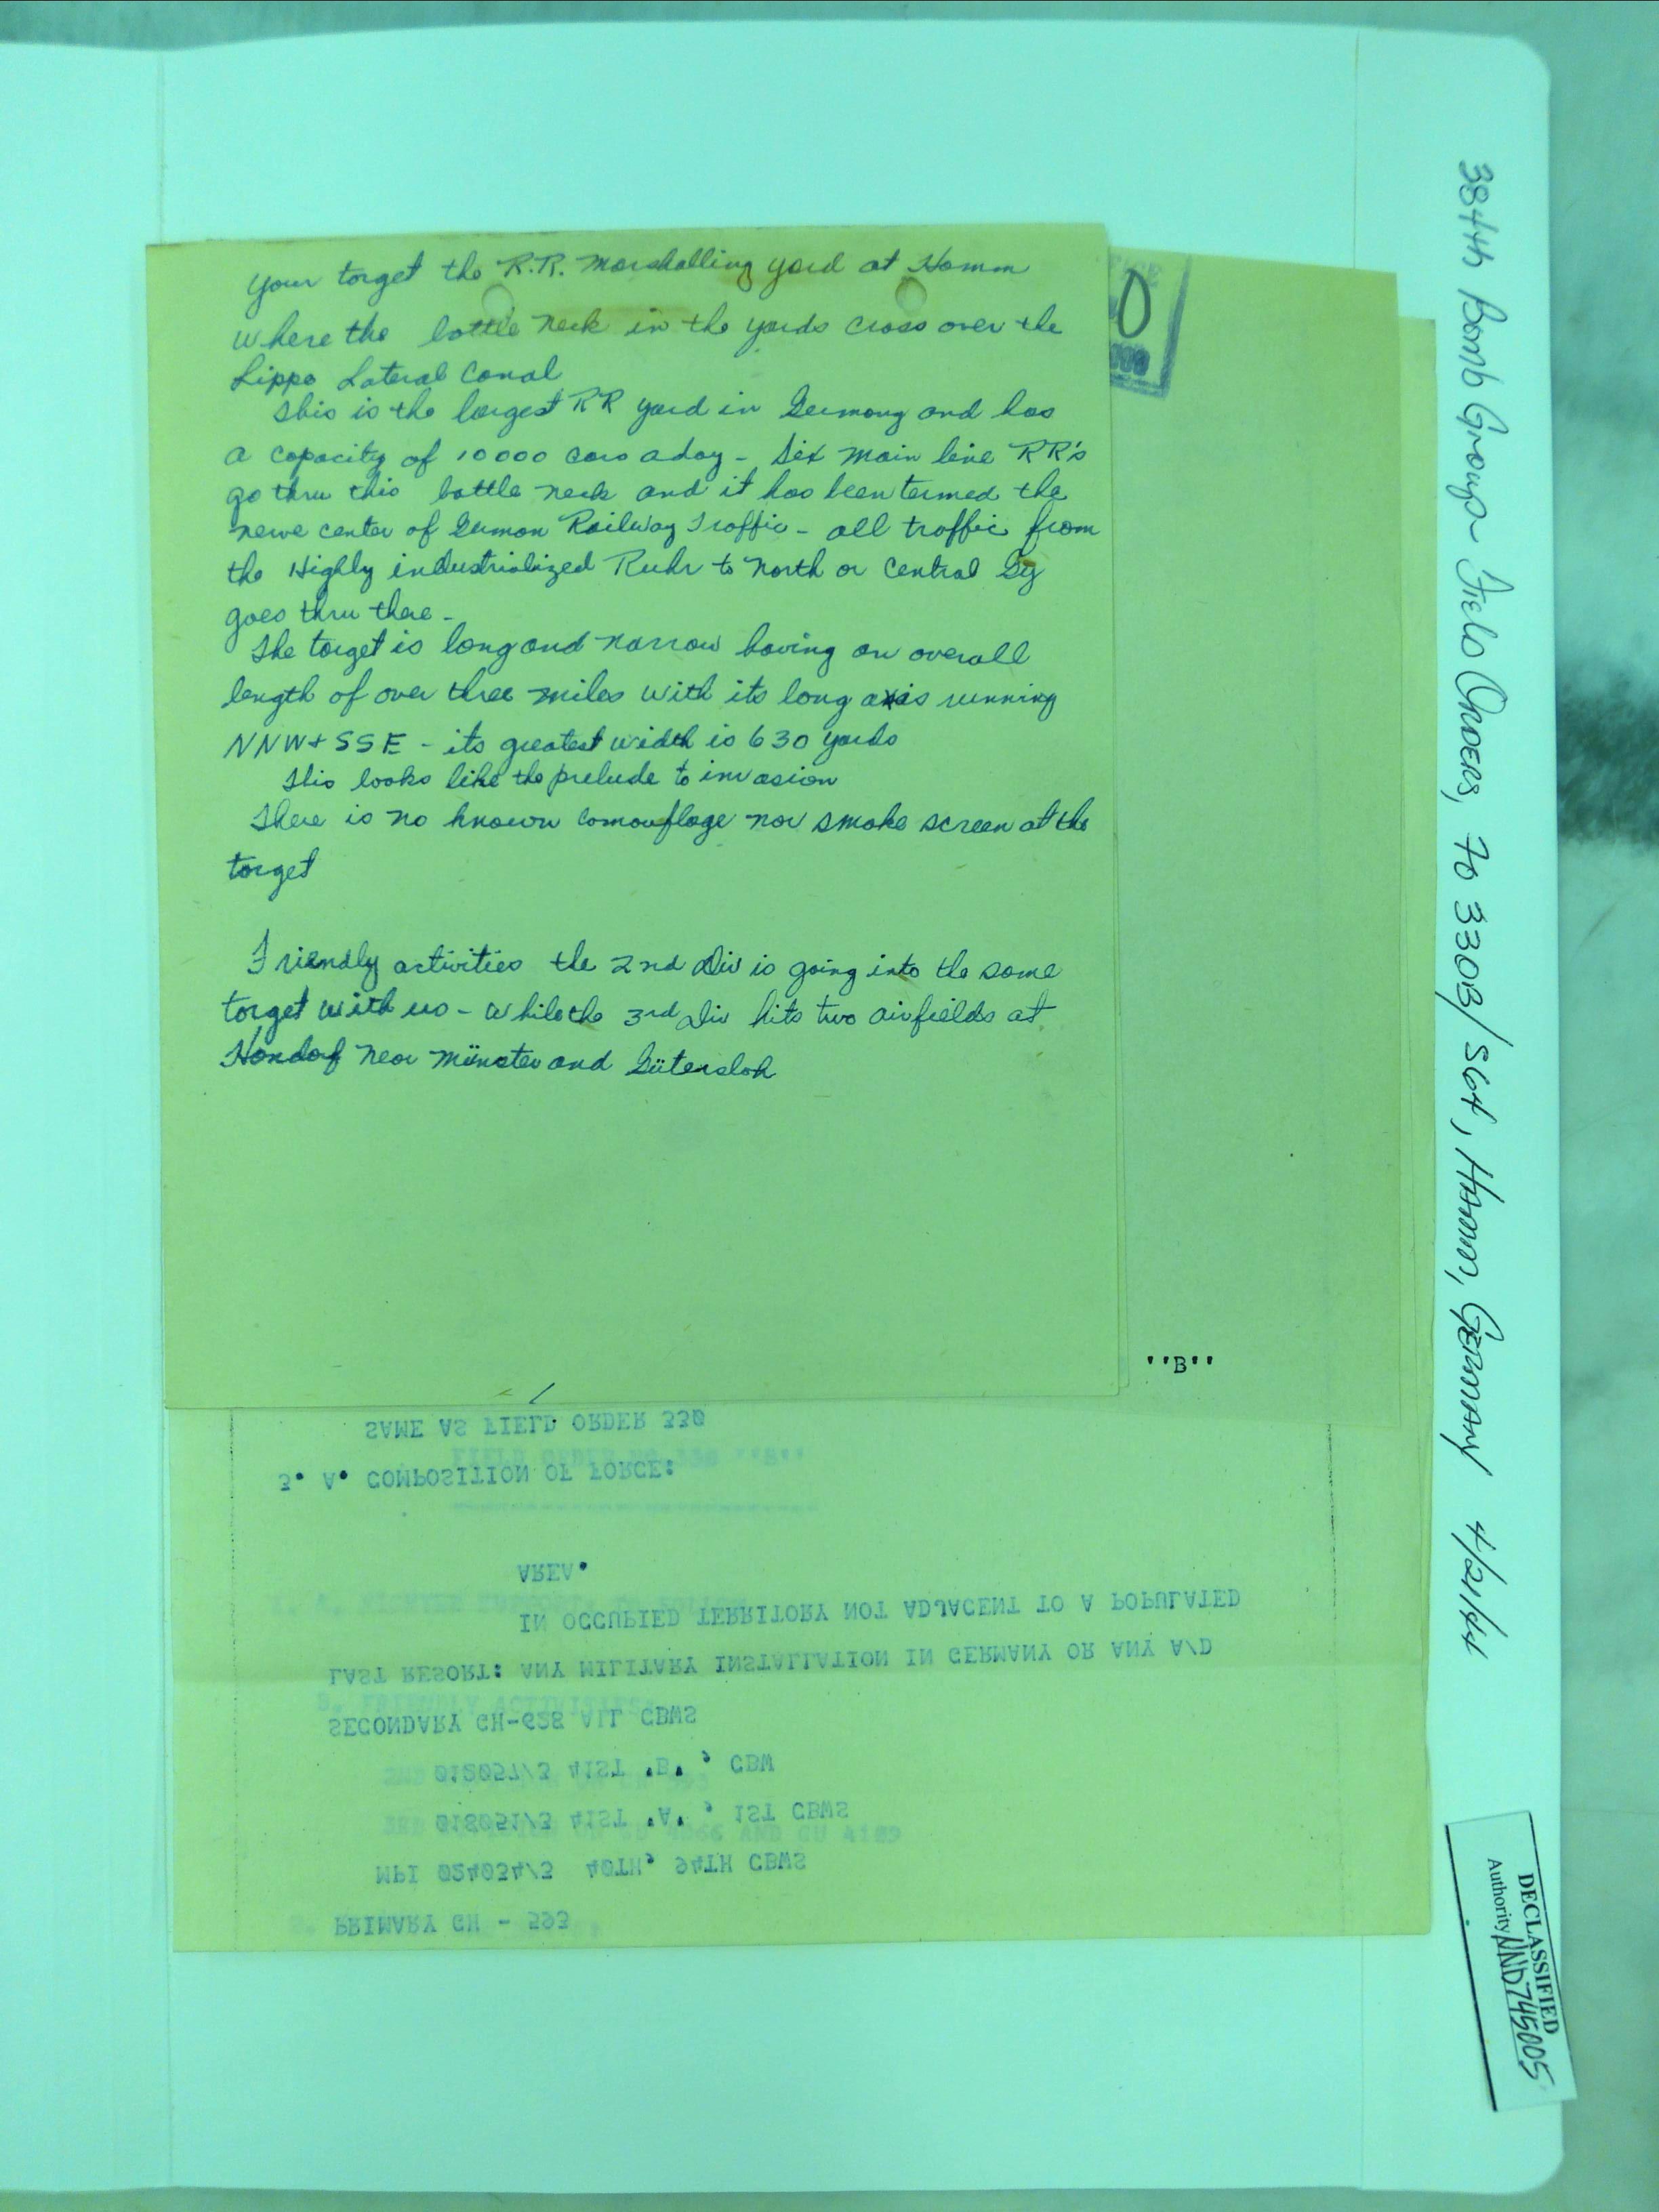 Your target the R.R. Marshalling yard at Hamm
where the bottle neck in the yards cross over the
Lippe Lateral Canal
This is the largest RR yard in Germany and has
a capacity of 10000 cars a day - Six main line RR's
go thru this bottle neck and it has been termed the
nerve center of German Railway Traffic - all traffic from
the Highly industrialized Ruhr to north or central Gy
goes thru there -
The target is long and narrow having an overall
length of over three miles with its long axis running
NNW + SSE - its greatest width is 630 yards
This looks like the prelude to invasion
There is no known camouflage nor smoke screen at the
target
Friendly activities the 2nd Div is going into the same
target with us - while the 3rd Div hits two airfields at
Handorf near Münster and Gütersloh
0
''B''
SAME AS FIELD ORDER 330
3. A. COMPOSITION OF FORCE:
AREA.
IN OCCUPIED TERRITORY NOT ADJACENT TO A POPULATED
LAST RESORT: ANY MILITARY INSTALLATION IN GERMANY OR ANY A/D
SECONDARY GH-628 ALL CBWS
012057/3 41ST 'B', CBW
018051/3 41ST 'A', 1ST CBWS
MPI 024034/3 40TH, 94TH CBWS
PRIMARY GH - 593
384th Bomb Group - Field Orders, FO 330B/S64, Hamm, Germany 4/21/44
DECLASSIFIED
Authority NND745005